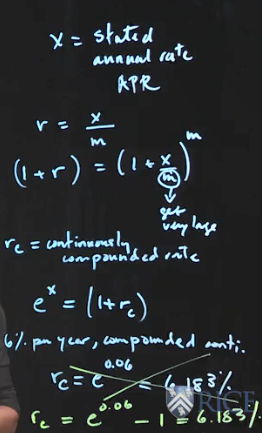 x = stated
annual rate
APR
r = x/m
(1+r) = (1 + x/m)^m
get
very large
r_c = continuously
compounded rate
e^x = (1+r_c)
6% per year, compounded conti.
r_c = e^0.06 = 6.183%
r_c = e^0.06 - 1 = 6.183%
RICE